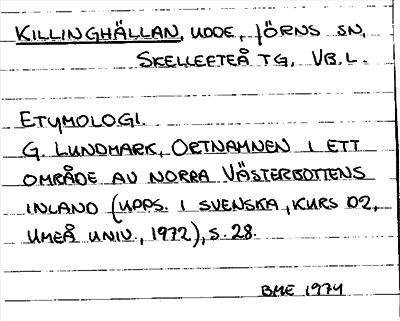 KILLINGHÄLLAN, UDDE, JÖRNS SN,
SKELLEFTEÅ TG, VB.L.
ETYMOLOGI.
G. LUNDMARK, ORTNAMNEN I ETT
OMRÅDE AV NORRA VÄSTERBOTTENS
INLAND (UPPS. I SVENSKA, KURS D2,
UMEÅ UNIV., 1972), S. 28.
BME 1974